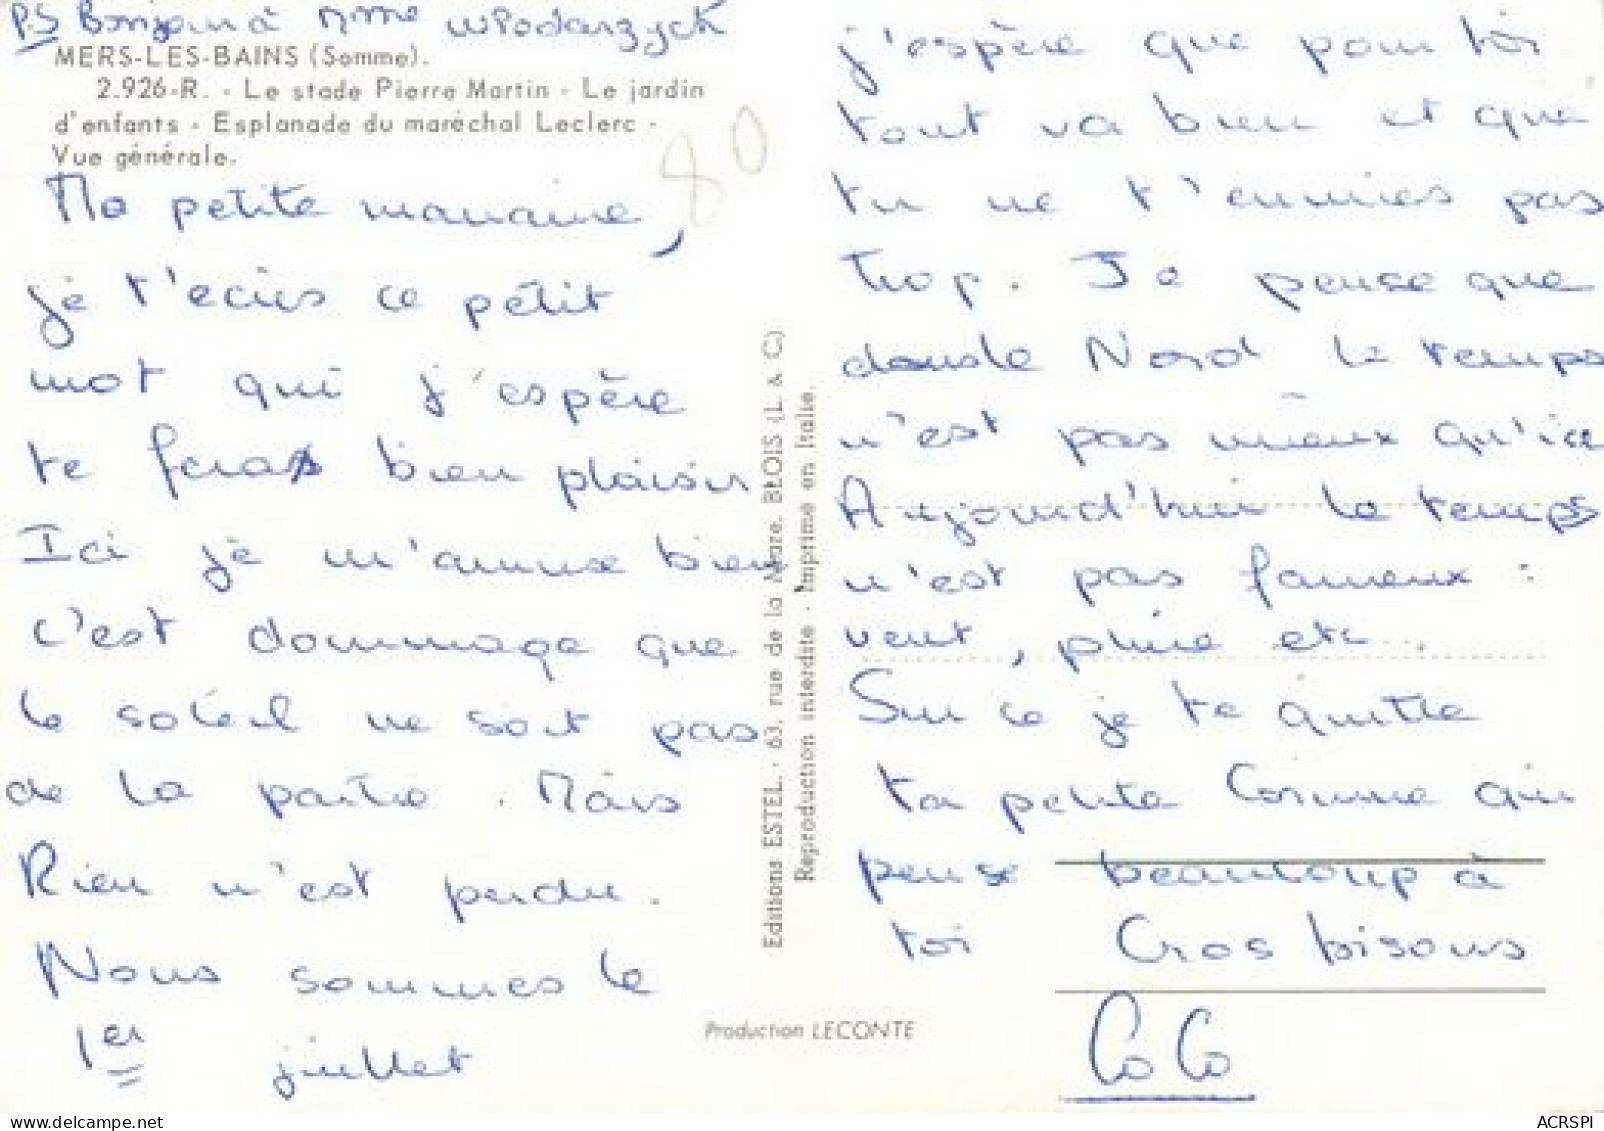 PS Bonjour à Mme Wlodarzyck
MERS-LES-BAINS (Somme).
2.926-R. - Le stade Pierre Martin - Le jardin
d'enfants - Esplanade du maréchal Leclerc -
Vue générale.
80
Ma petite marraine,
je t'écris ce petit
mot qui j'espère
te feras bien plaisir
Ici je m'amuse bien
c'est dommage que
le soleil ne soit pas
de la partie. Mais
Rien n'est perdu.
Nous sommes le
1er juillet
Editions ESTEL. - 63, rue de la Mare. BLOIS (L. & C.)
Reproduction interdite - Imprimé en Italie.
Production LECONTE
j'espère que pour toi
tout va bien et que
tu ne t'ennuies pas
trop. Je pense que
dans le Nord le temps
n'est pas mieux qu'ici
Aujourd'hui le temps
n'est pas fameux :
vent, pluie etc.
Sur ce je te quitte
ta petite Corinne qui
pense beaucoup à
toi Gros bisous
CoCo
ACRSPI